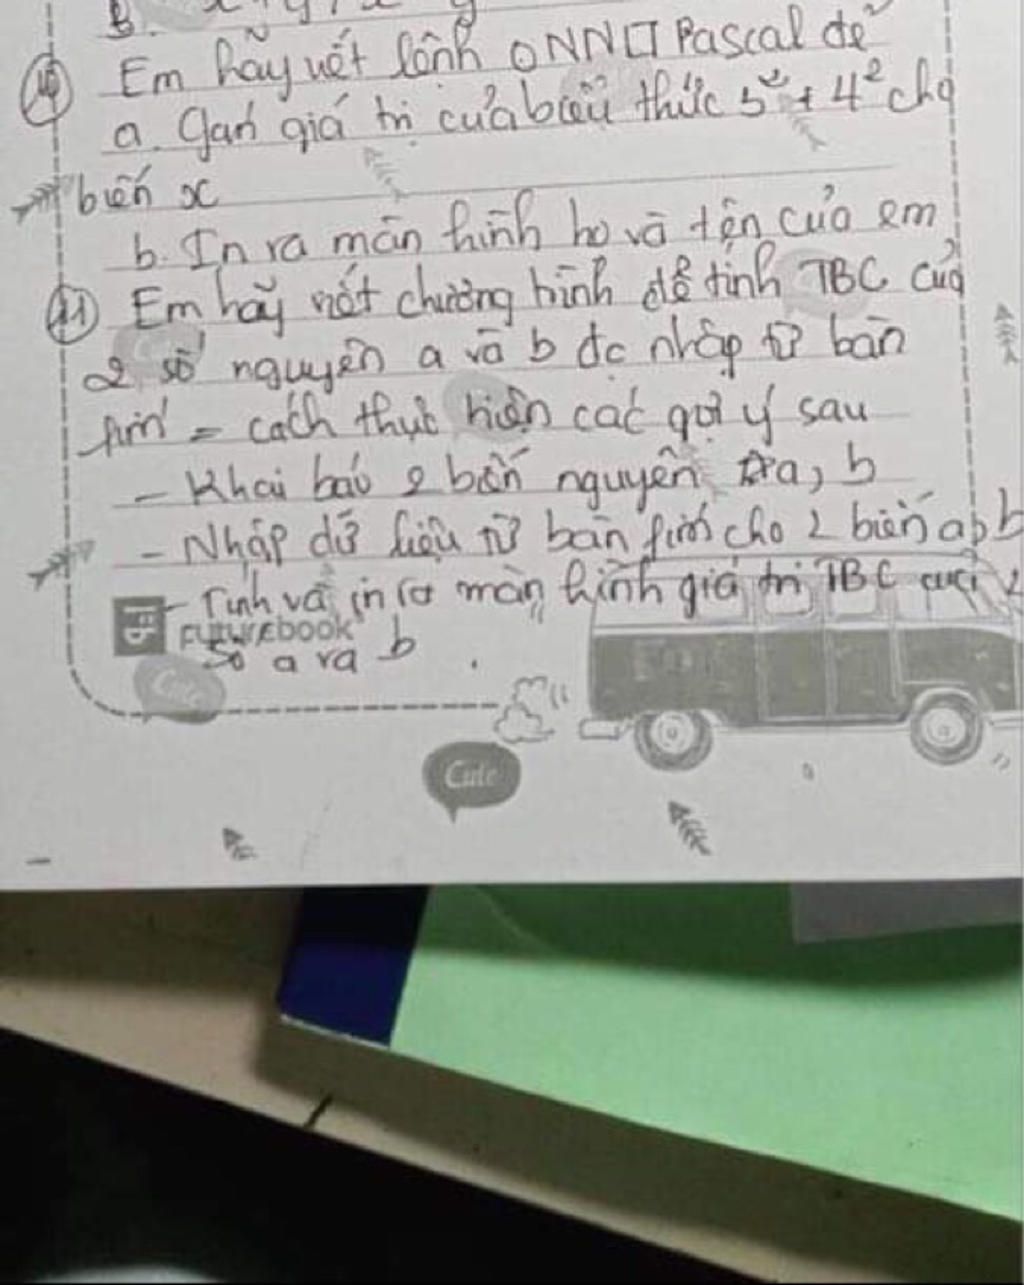 10 Em hãy viết lệnh ONNLT Pascal để
a. Gán giá trị của biểu thức 5² + 4² cho
biến x
b. In ra màn hình họ và tên của em
11 Em hãy viết chương trình để tính TBC của
2 số nguyên a và b đc nhập từ bàn
fím = cách thực hiện các gợi ý sau
- Khai báo 2 biến nguyên a, b
- Nhập dữ liệu từ bàn fím cho 2 biến a, b
- Tính và in ra màn hình giá trị TBC của 2
FUTUREBOOK
số a và b.
Cute
Cute